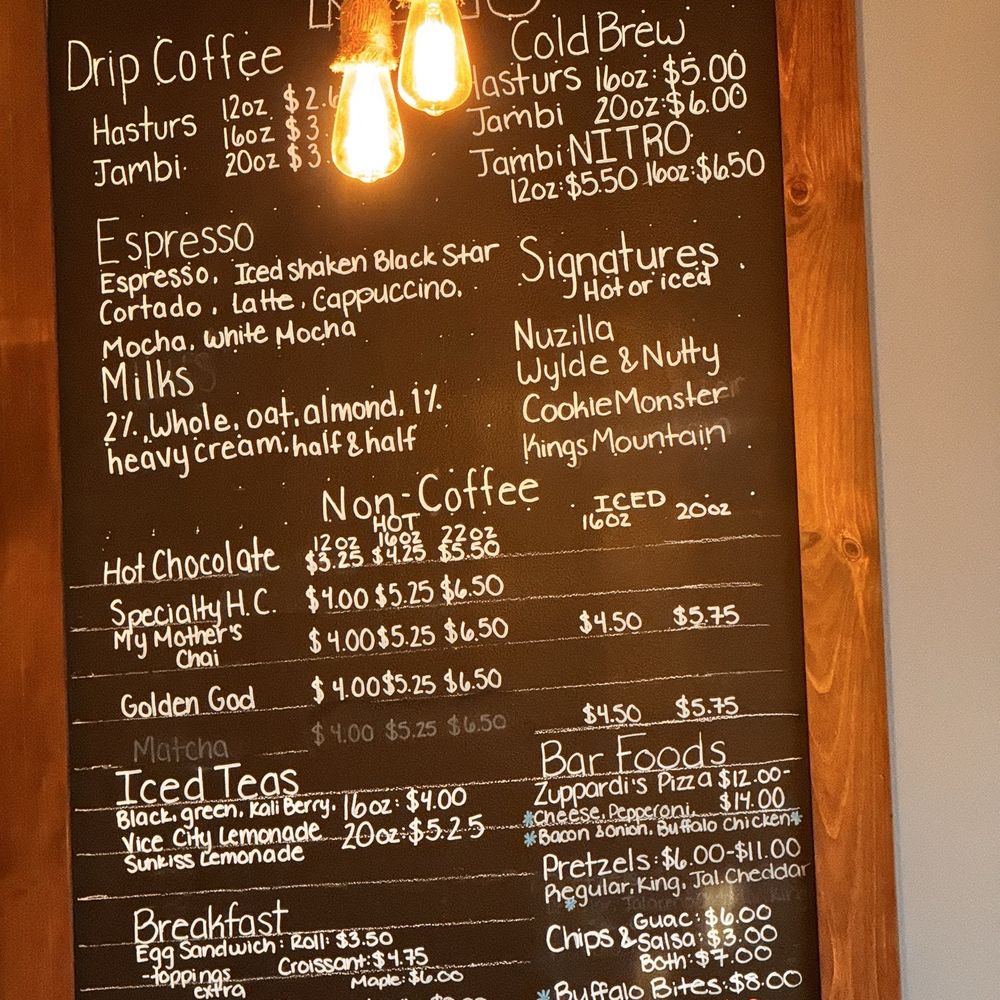 Drip Coffee
Hasturs 12oz $2.
16oz $3.
Jambi 20oz $3.
Cold Brew
Hasturs 16oz: $5.00
Jambi 20oz: $6.00
Jambi NITRO
12oz: $5.50 16oz: $6.50
Espresso
Espresso, Iced shaken Black Star
Cortado, Latte, Cappuccino,
Mocha, White Mocha
Milks
2%, Whole, oat, almond, 1%
heavy cream, half & half
Signatures
Hot or iced
Nuzilla
Wylde & Nutty
Cookie Monster
Kings Mountain
Non-Coffee
HOT ICED
12oz 16oz 22oz 16oz 20oz
Hot Chocolate $3.25 $4.25 $5.50
Specialty H.C. $4.00 $5.25 $6.50
My Mother's
Chai $4.00 $5.25 $6.50 $4.50 $5.75
Golden God $4.00 $5.25 $6.50
Matcha $4.00 $5.25 $6.50 $4.50 $5.75
Iced Teas
Black, green, Kali Berry, 16oz: $4.00
Vice City Lemonade 20oz: $5.25
Sunkiss Lemonade
Breakfast
Egg Sandwich: Roll: $3.50
-toppings Croissant: $4.75
extra Maple: $6.00
Bar Foods
Zuppardi's Pizza $12.00-
*Cheese, Pepperoni, $14.00
*Bacon & Onion, Buffalo Chicken*
Pretzels: $6.00-$11.00
Regular, King, Jal. Cheddar
Guac: $6.00
Chips & Salsa: $3.00
Both: $7.00
*Buffalo Bites: $8.00